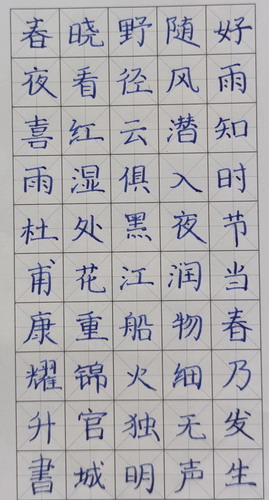 好雨知时节当春乃发生
随风潜入夜润物细无声
野径云俱黑江船火独明
晓看红湿处花重锦官城
春夜喜雨杜甫康耀升書